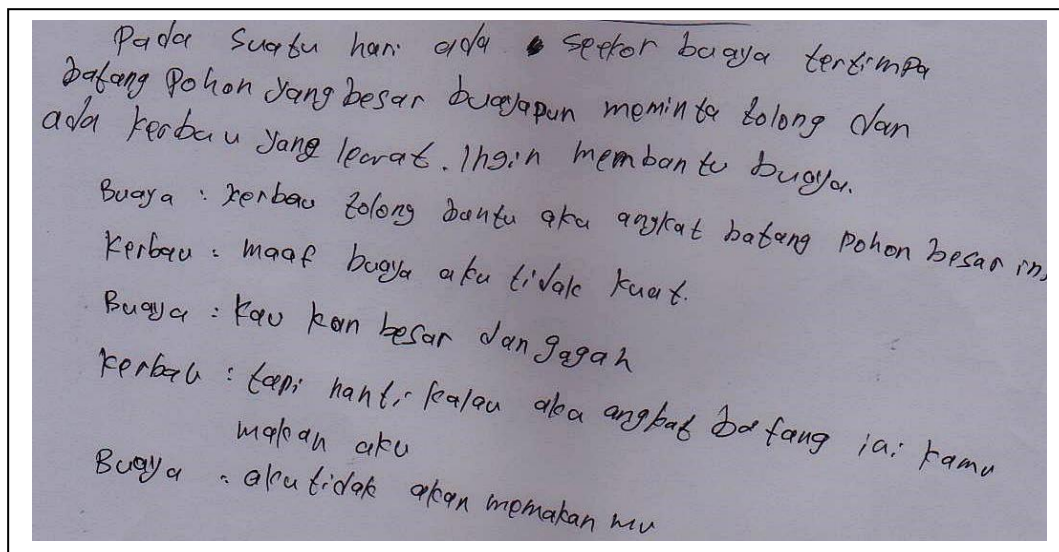 Pada Suatu hari ada seekor buaya tertimpa
batang Pohon yang besar buayapun meminta tolong dan
ada kerbau yang lewat. Ingin membantu buaya.
Buaya : kerbau tolong bantu aku angkat batang pohon besar ini
kerbau : maaf buaya aku tidak kuat.
Buaya : kau kan besar dan gagah
kerbau : tapi nanti kalau aku angkat batang ini kamu
makan aku
Buaya : aku tidak akan memakan mu